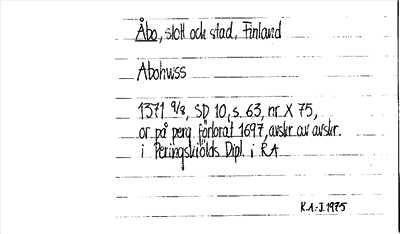 Åbo, slott och stad, Finland
Abohwss
1371 9/8, SD 10, s. 63, nr X 75,
or på perg. förlorat 1697, avskr. av avskr.
i Peringskiölds Dipl. i RA
K.A.-J. 1975